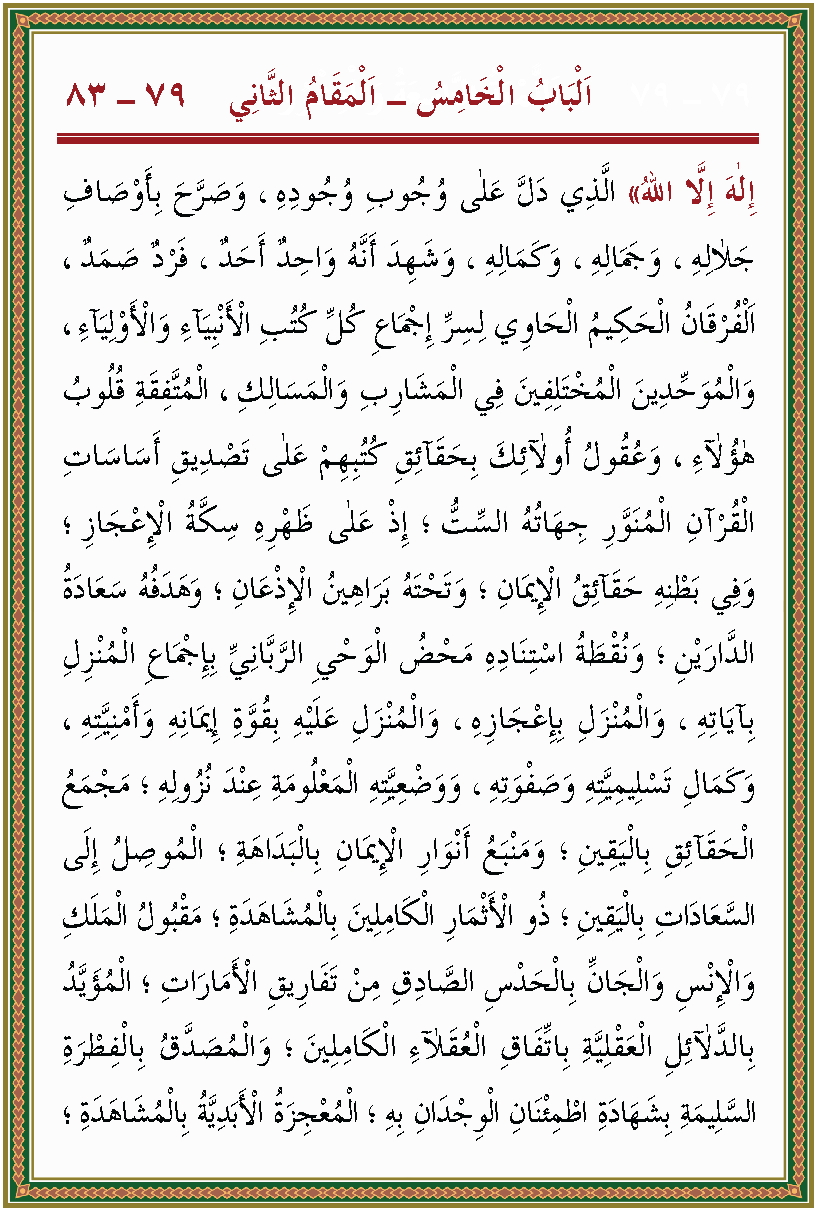 اَلْبَابُ الْخَامِسُ ــ اَلْمَقَامُ الثَّانِي ٧٩ ــ ٨٣
إِلٰهَ إِلَّا اللهُ» الَّذِي دَلَّ عَلٰى وُجُوبِ وُجُودِهِ ، وَصَرَّحَ بِأَوْصَافِ
جَلَالِهِ ، وَجَمَالِهِ ، وَكَمَالِهِ ، وَشَهِدَ أَنَّهُ وَاحِدٌ أَحَدٌ ، فَرْدٌ صَمَدٌ ،
اَلْفُرْقَانُ الْحَكِيمُ الْحَاوِي لِسِرِّ إِجْمَاعِ كُلِّ كُتُبِ الْأَنْبِيَآءِ وَالْأَوْلِيَآءِ ،
وَالْمُوَحِّدِينَ الْمُخْتَلِفِينَ فِي الْمَشَارِبِ وَالْمَسَالِكِ ، الْمُتَّفِقَةِ قُلُوبُ
هٰؤُلَآءِ ، وَعُقُولُ أُولٰٓئِكَ بِحَقَآئِقِ كُتُبِهِمْ عَلٰى تَصْدِيقِ أَسَاسَاتِ
الْقُرْآنِ الْمُنَوَّرِ جِهَاتُهُ السِّتُّ ؛ إِذْ عَلٰى ظَهْرِهِ سِكَّةُ الْإِعْجَازِ ؛
وَفِي بَطْنِهِ حَقَآئِقُ الْإِيمَانِ ؛ وَتَحْتَهُ بَرَاهِينُ الْإِذْعَانِ ؛ وَهَدَفُهُ سَعَادَةُ
الدَّارَيْنِ ؛ وَنُقْطَةُ اسْتِنَادِهِ مَحْضُ الْوَحْيِ الرَّبَّانِيِّ بِإِجْمَاعِ الْمُنْزِلِ
بِآيَاتِهِ ، وَالْمُنْزَلِ بِإِعْجَازِهِ ، وَالْمُنْزَلِ عَلَيْهِ بِقُوَّةِ إِيمَانِهِ وَأَمْنِيَّتِهِ ،
وَكَمَالِ تَسْلِيمِيَّتِهِ وَصَفْوَتِهِ ، وَوَضْعِيَّتِهِ الْمَعْلُومَةِ عِنْدَ نُزُولِهِ ؛ مَجْمَعُ
الْحَقَآئِقِ بِالْيَقِينِ ؛ وَمَنْبَعُ أَنْوَارِ الْإِيمَانِ بِالْبَدَاهَةِ ؛ الْمُوصِلُ إِلَى
السَّعَادَاتِ بِالْيَقِينِ ؛ ذُو الْأَثْمَارِ الْكَامِلِينَ بِالْمُشَاهَدَةِ ؛ مَقْبُولُ الْمَلَكِ
وَالْإِنْسِ وَالْجَانِّ بِالْحَدْسِ الصَّادِقِ مِنْ تَفَارِيقِ الْأَمَارَاتِ ؛ الْمُؤَيَّدُ
بِالدَّلَآئِلِ الْعَقْلِيَّةِ بِاتِّفَاقِ الْعُقَلَآءِ الْكَامِلِينَ ؛ وَالْمُصَدَّقُ بِالْفِطْرَةِ
السَّلِيمَةِ بِشَهَادَةِ اطْمِئْنَانِ الْوِجْدَانِ بِهِ ؛ الْمُعْجِزَةُ الْأَبَدِيَّةُ بِالْمُشَاهَدَةِ ؛